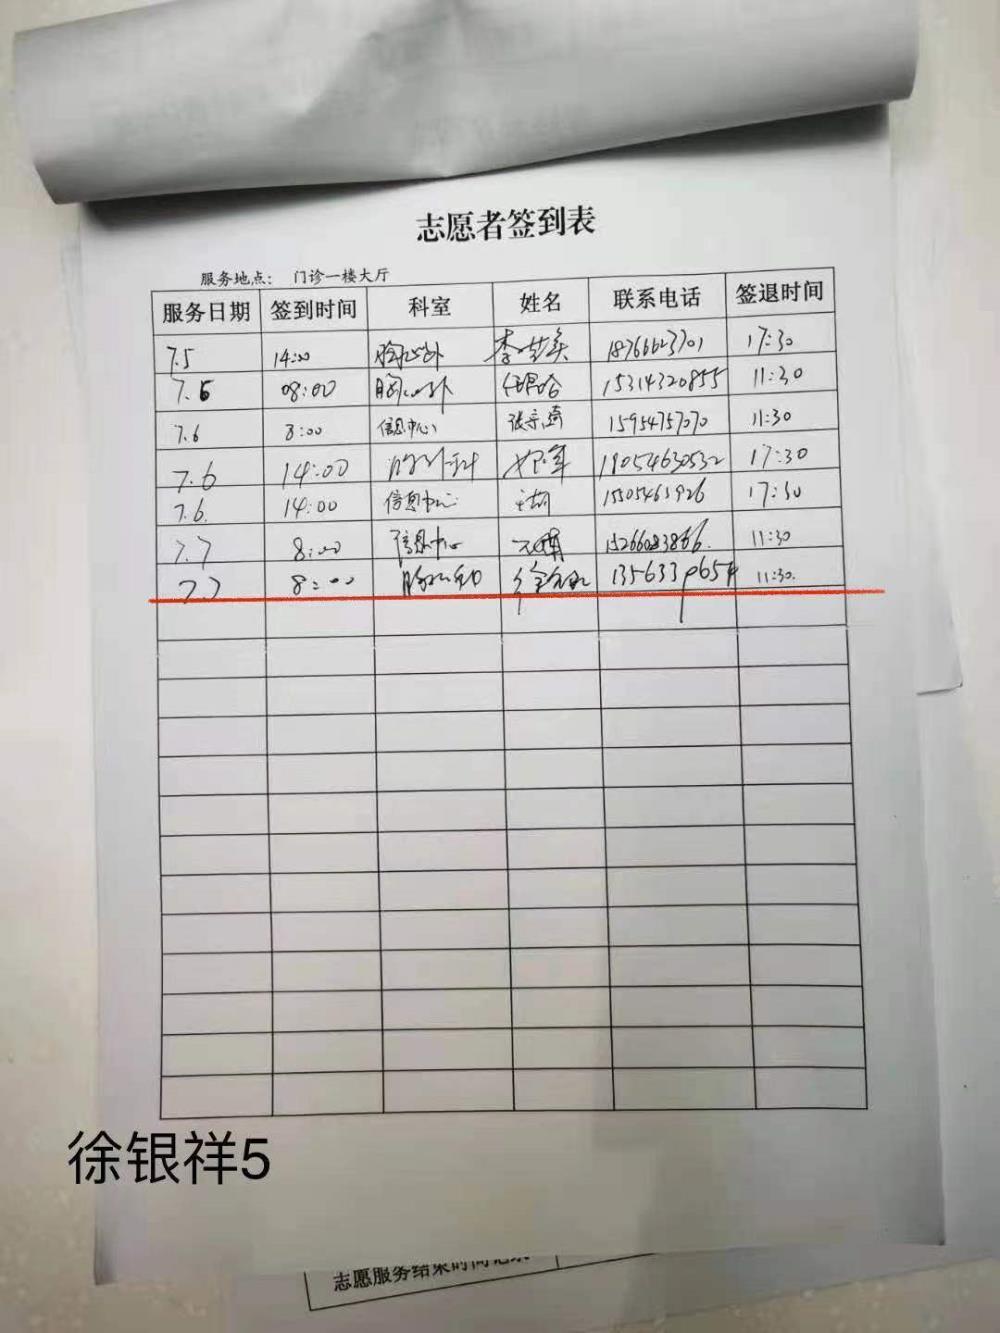 志愿者签到表
服务地点： 门诊一楼大厅
服务日期 签到时间 科室 姓名 联系电话 签退时间
7.5 14:00 胸心外 18766623701 17:30
7.6 08:00 胸心外 15314320855 11:30
7.6 8:00 信息中心 张宗琦 15954757070 11:30
7.6 14:00 19054630532 17:30
7.6. 14:00 信息中心 15505463926 17:30
7.7 8:00 信息中心 15266083866. 11:30
7.7 8:00 11:30.
徐银祥5
志愿服务结束时间记录